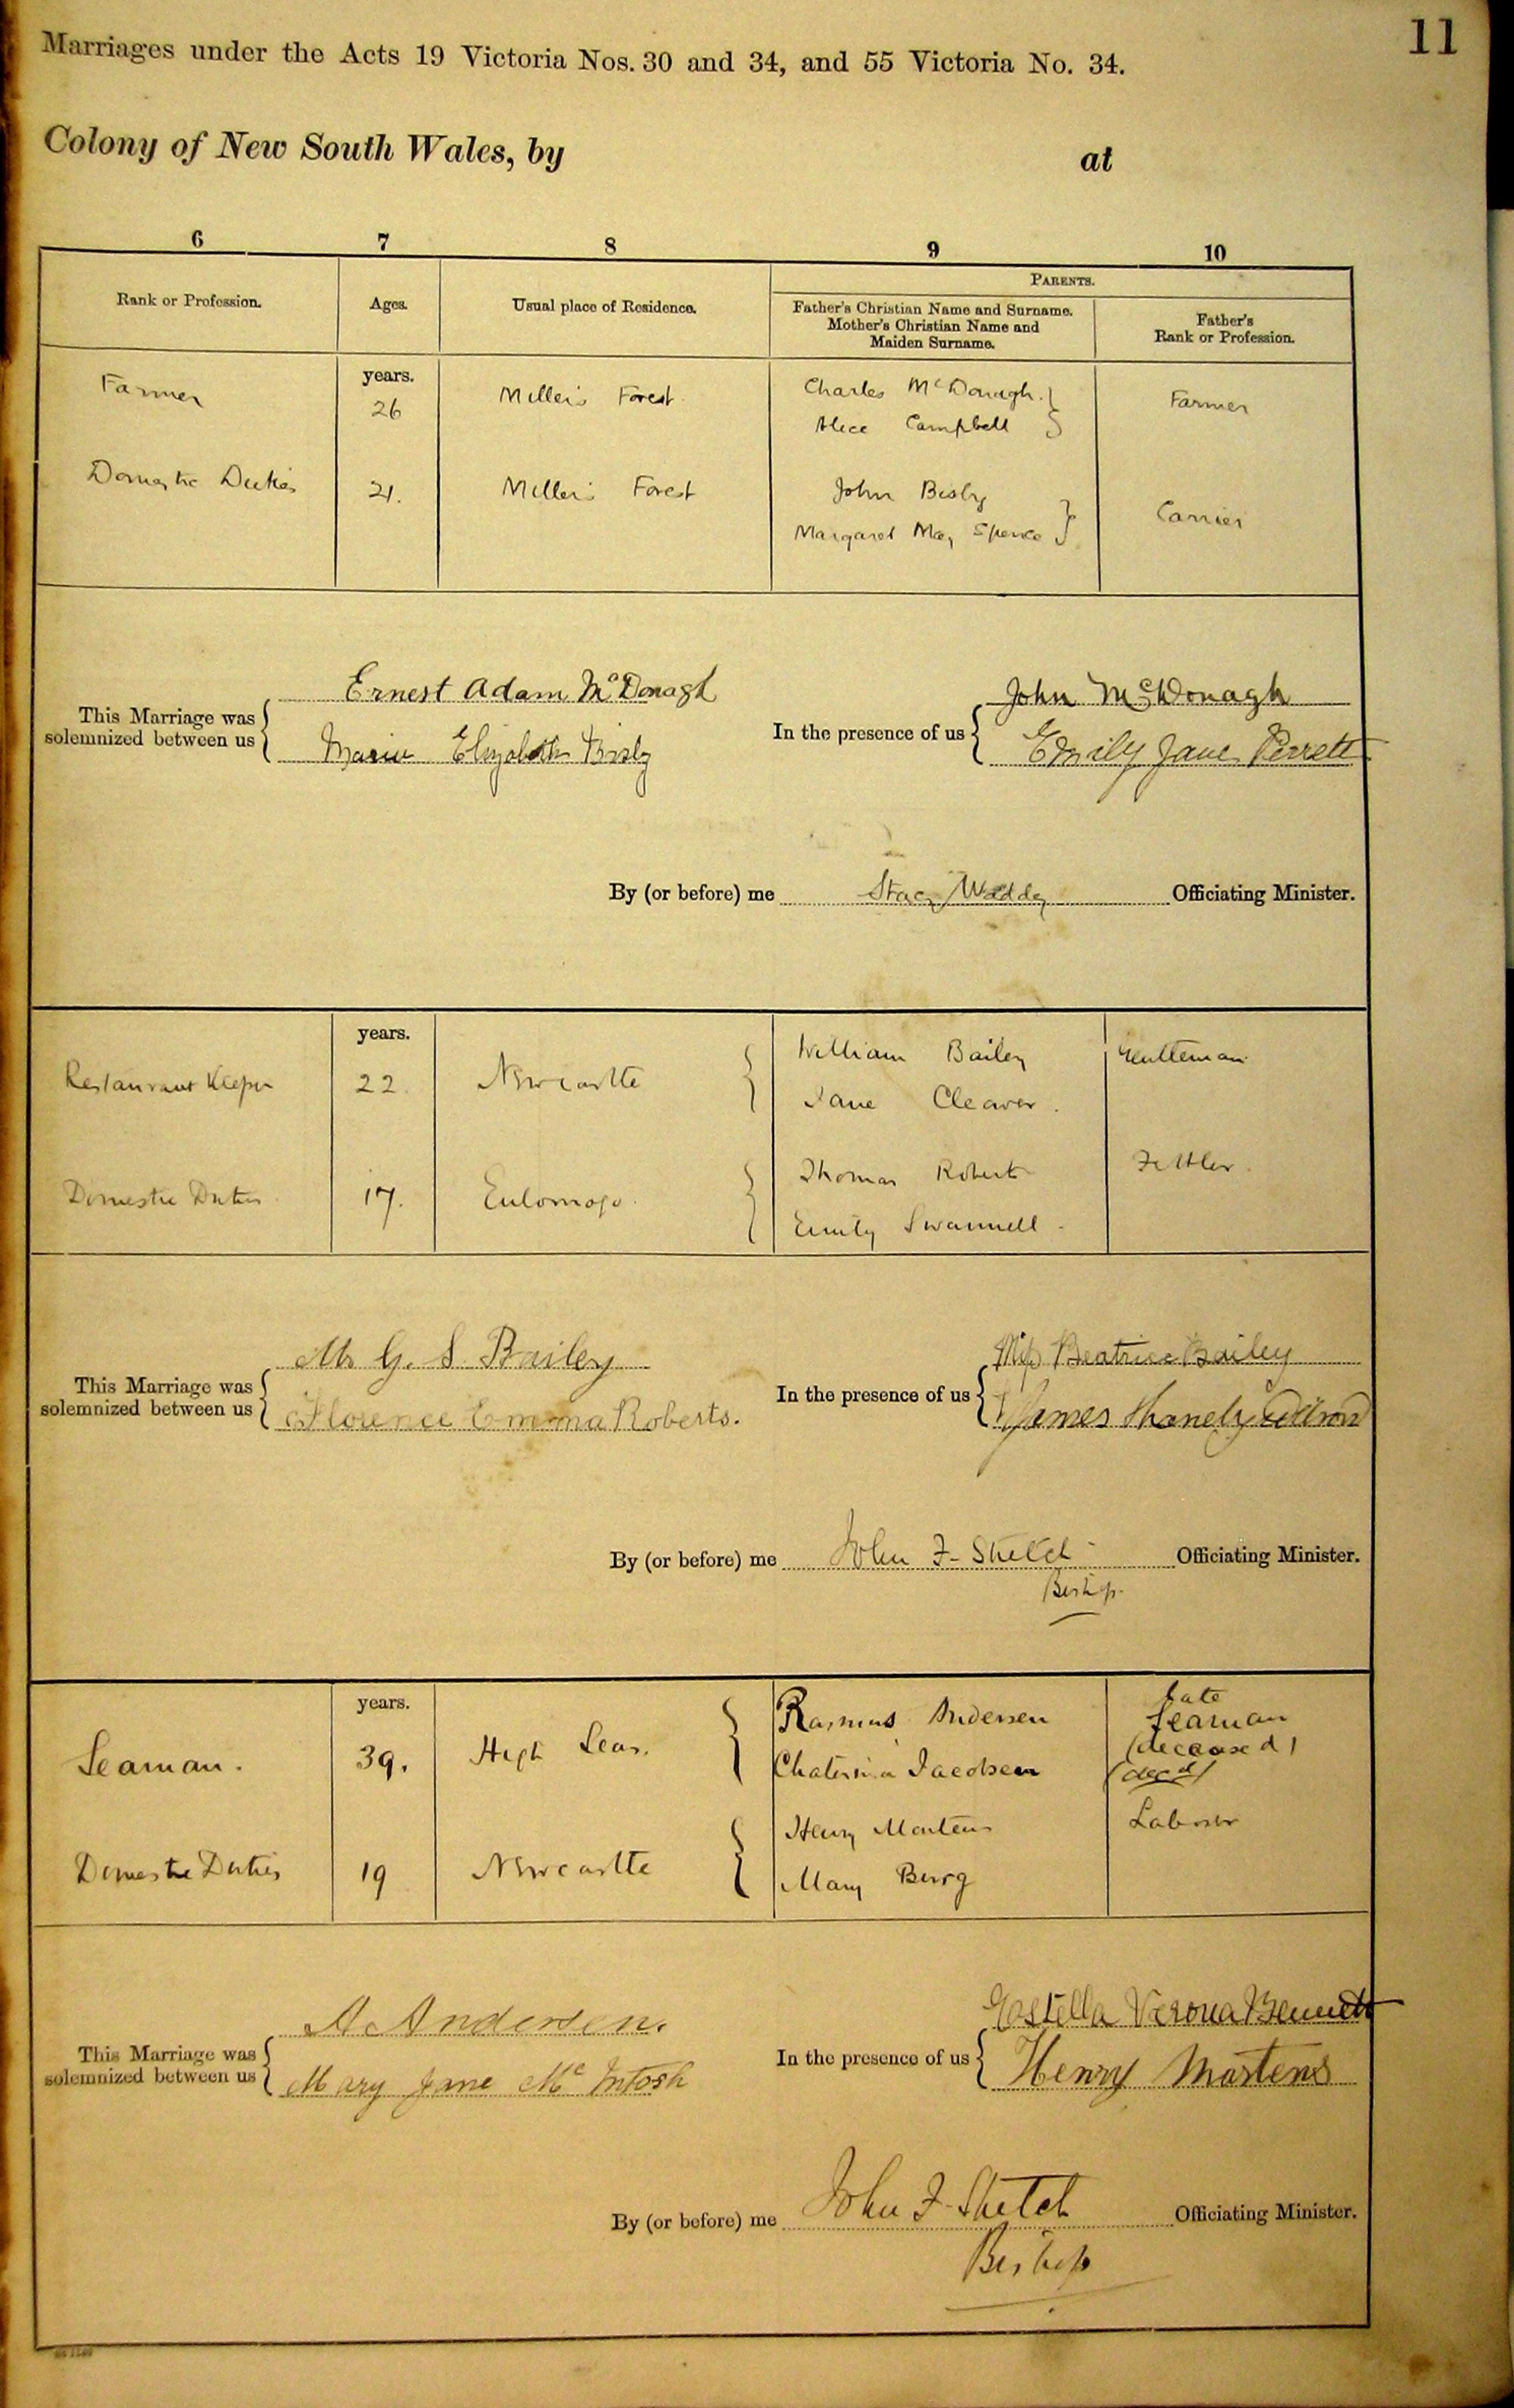 11
Marriages under the Acts 19 Victoria Nos. 30 and 34, and 55 Victoria No. 34.
Colony of New South Wales, by at
6 7 8 9 10
Rank or Profession. Ages. Usual place of Residence. PARENTS.
Father's Christian Name and Surname.
Mother's Christian Name and
Maiden Surname.
Father's
Rank or Profession.
years.
Farmer 26 Millers Forest Charles McDonagh Farmer
Alice Campbell
Domestic Duties 21. Millers Forest John Bisby Carrier
Margaret May Spence
This Marriage was
solemnized between us
Ernest Adam McDonagh
Elizabeth Bisby
In the presence of us
John McDonagh
Emily Jane Perrett
By (or before) me Stacy Waddy Officiating Minister.
years.
Restaurant Keeper 22. Newcastle William Bailey Gentleman
Jane Cleaver.
Domestic Duties 17. Eulomogo Thomas Roberts Fettler.
Emily Swannell
This Marriage was
solemnized between us
G. S. Bailey
Florence Emma Roberts.
In the presence of us
Miss Beatrice Bailey
James
By (or before) me John F. Stretch Officiating Minister.
Bishop
years.
Seaman. 39. High Seas. Rasmus Andersen late
Seaman
(deceased)
Jacobsen (decd)
Domestic Duties 19 Newcastle Henry Martens Labourer
Mary Burg
This Marriage was
solemnized between us
A. Andersen.
Mary Jane McIntosh
In the presence of us
Estella Verona Bennett
Henry Martens
By (or before) me John F. Stretch Officiating Minister.
Bishop